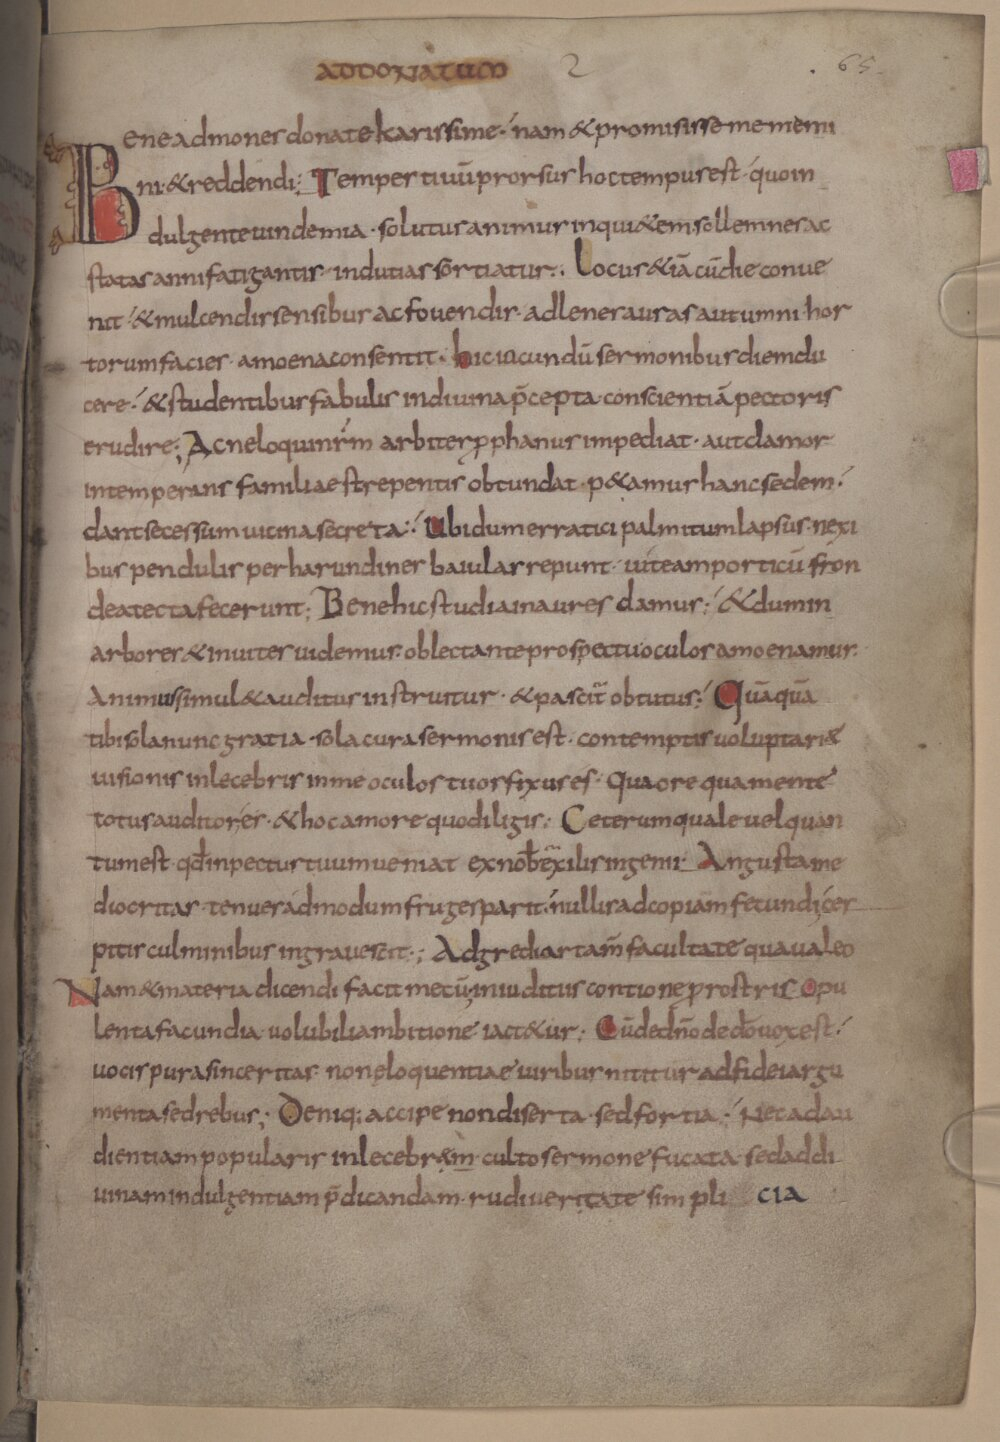 AD DONATUM 2 65
Bene admones donate karissime· nam & promisisse me memi
ni· & reddendi; Tempertiuū prorsus hoc tempus est· quo in
dulgente uindemia· solutus animus in qui&em sollemnes ac
statas anni fatigantis· indutias sortiatur:. Locus &iā cū die conue
nit· & mulcendis sensibus ac fouendis· ad lenes auras autumni hor
torum facies· amoena consentit. hic iucundū sermonibus diem du
cere· & studentibus fabulis in diuina p̄cepta· conscientiā pectoris
erudire; Ac ne loquiū nr̄m arbiter p̱phanus impediat· aut clamor
intemperans familiae strepentis obtundat· p&amus hanc sedem·
dant secessum uicina secreta:· Ubi dum erratici palmitum lapsus· nexi
bus pendulis per harundines baiulas repunt· uiteam porticū fron
dea tecta fecerunt; Bene hic studia in aures damus; & dum in
arbores & in uites uidemus· oblectante prospectu oculos amoenamus·
Animus simul & auditus instruitur· & pascit̄ obtutus; Quāquā
tibi sola nunc gratia· sola cura sermonis est· contemptis uoluptarię
uisionis inlecebris in me oculos tuos fixus es· Qua ore qua mente
totus auditor es· & hoc amore quo diligis: Ceterum quale uel quan
tum est qd̄ in pectus tuum ueniat ex nob̄ exilis ingenii· Angusta me
diocritas· tenues admodum fruges parit· nullis ad copiam fecundi ces
pitis culminibus ingrauescit·; Adgrediar tam̄ facultate qua ualeo
Nam & materia dicendi facit mecū· in iuditiis contione p̱ rostris Opu
lenta facundia· uolubili ambitione iact&ur; Cū de dn̄o de dō uox est·
uocis pura sinceritas· non eloquentiae uiribus nititur ad fidei argu
menta sed rebus; Deniq; accipe non diserta· sed fortia; Nec ad au
dientiam popularis inlecebram· culto sermone fucata· sed ad di
uinam indulgentiam p̄dicandam· rudi ueritate simpli cia